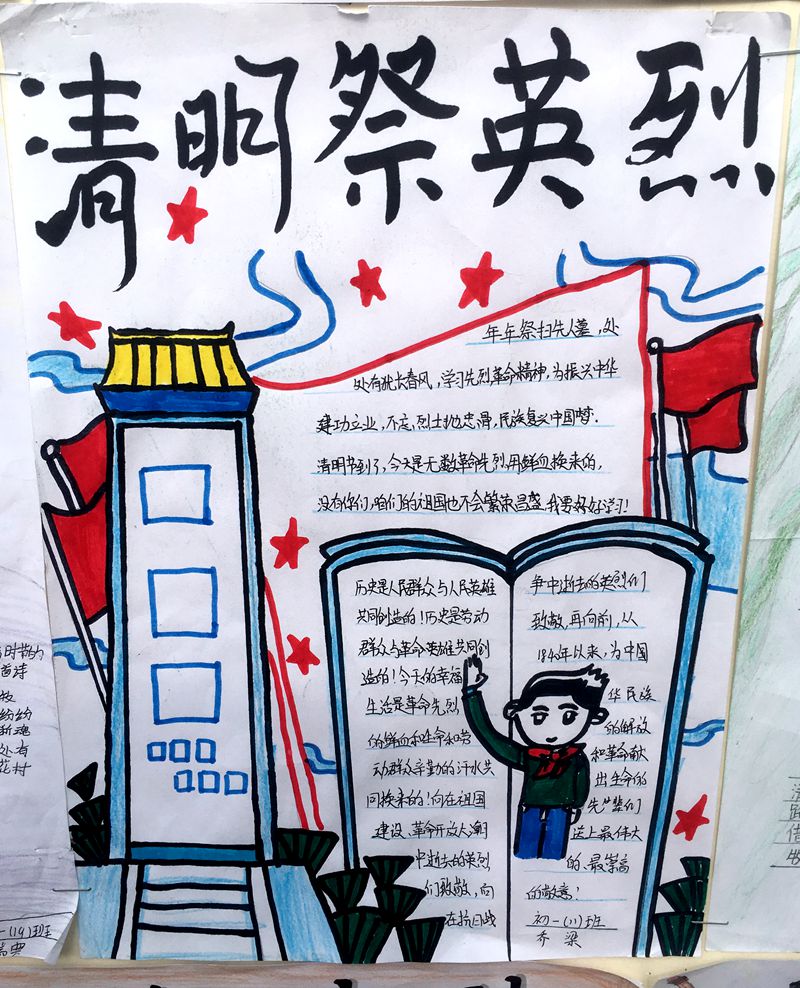 清明祭英烈
年年祭扫先人墓,处
处有犹长春风,学习先烈革命精神,为振兴中华
建功立业,不忘烈士地忠骨,民族复兴中国梦.
清明节到了,今天是无数革命先烈用鲜血换来的,
没有你们,咱们的祖国也不会繁荣昌盛,我要好好学习!
历史是人民群众与人民英雄
共同创造的!历史是劳动
群众与革命英雄共同创
造的!今天的幸福
生活是革命先烈
的鲜血和生命和劳
动群众辛勤的汗水共
同换来的!向在祖国
建设、革命开放大潮
中逝去的英烈
们致敬,向
在抗日战
争中逝去的英烈们
致敬,再向前,从
1840年以来,为中国
华民族
的解放
和革命献
出生命的
先辈们
送上最伟大
的、最崇高
的敬意!
初一(11)班
乔梁
时节
首诗
纷纷
断魂
处有
花村
一(19)班